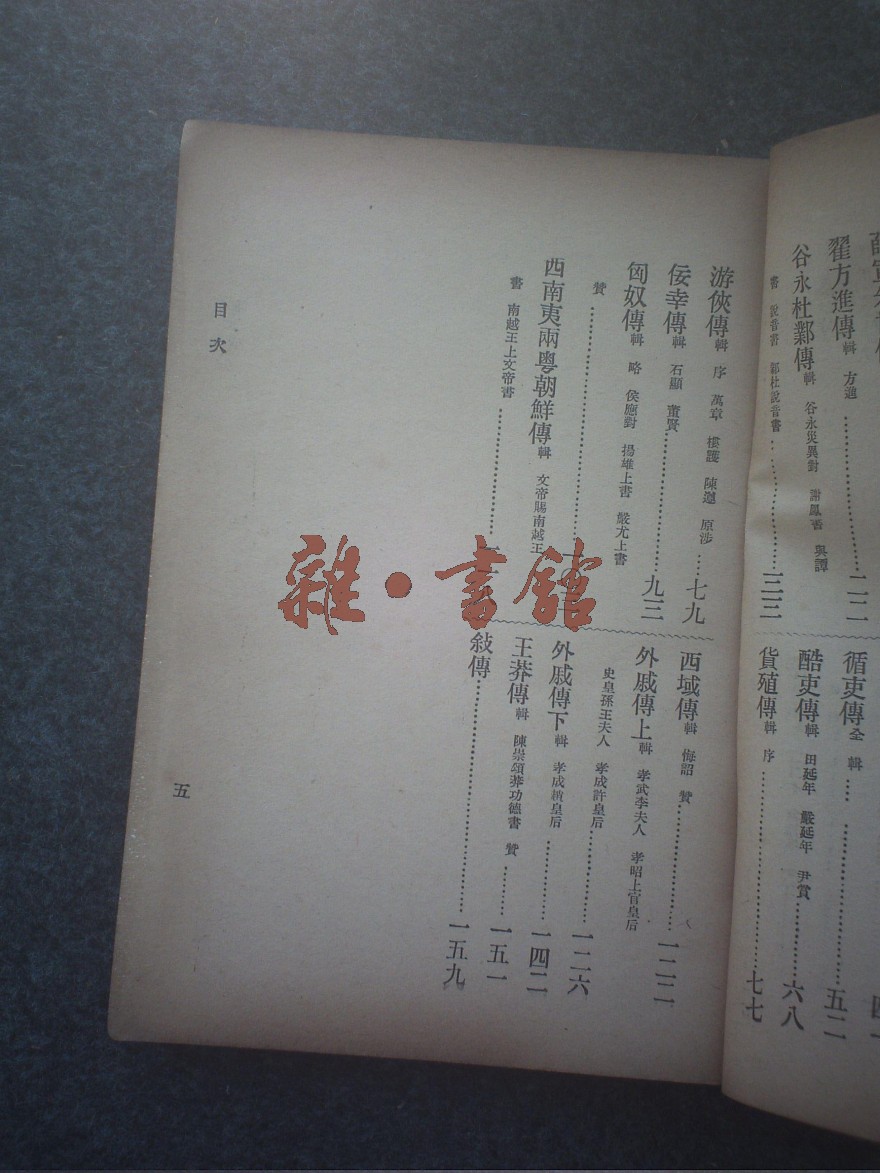 翟方進傳 輯 方進
谷永杜鄴傳 輯 谷永災異對 謝鳳書 與譚
書 說音書 鄴杜說音書
循吏傳 全 輯 五二
酷吏傳 輯 田延年 嚴延年 尹賞 六八
貨殖傳 輯 序 七七
游俠傳 輯 序 萬章 樓護 陳遵 原涉 七九
佞幸傳 輯 石顯 董賢 九三
匈奴傳 輯 略 侯應對 揚雄上書 嚴尤上書
贊
西南夷兩粵朝鮮傳 輯 文帝賜南越王
書 南越王上文帝書
西域傳 輯 悔詔 贊 一二二
外戚傳上 輯 孝武李夫人 孝昭上官皇后
史皇孫王夫人 孝成許皇后 一二六
外戚傳下 輯 孝成趙皇后 一四二
王莽傳 輯 陳崇頌莽功德書 贊 一五一
敍傳 一五九
目次
五
雜·書館